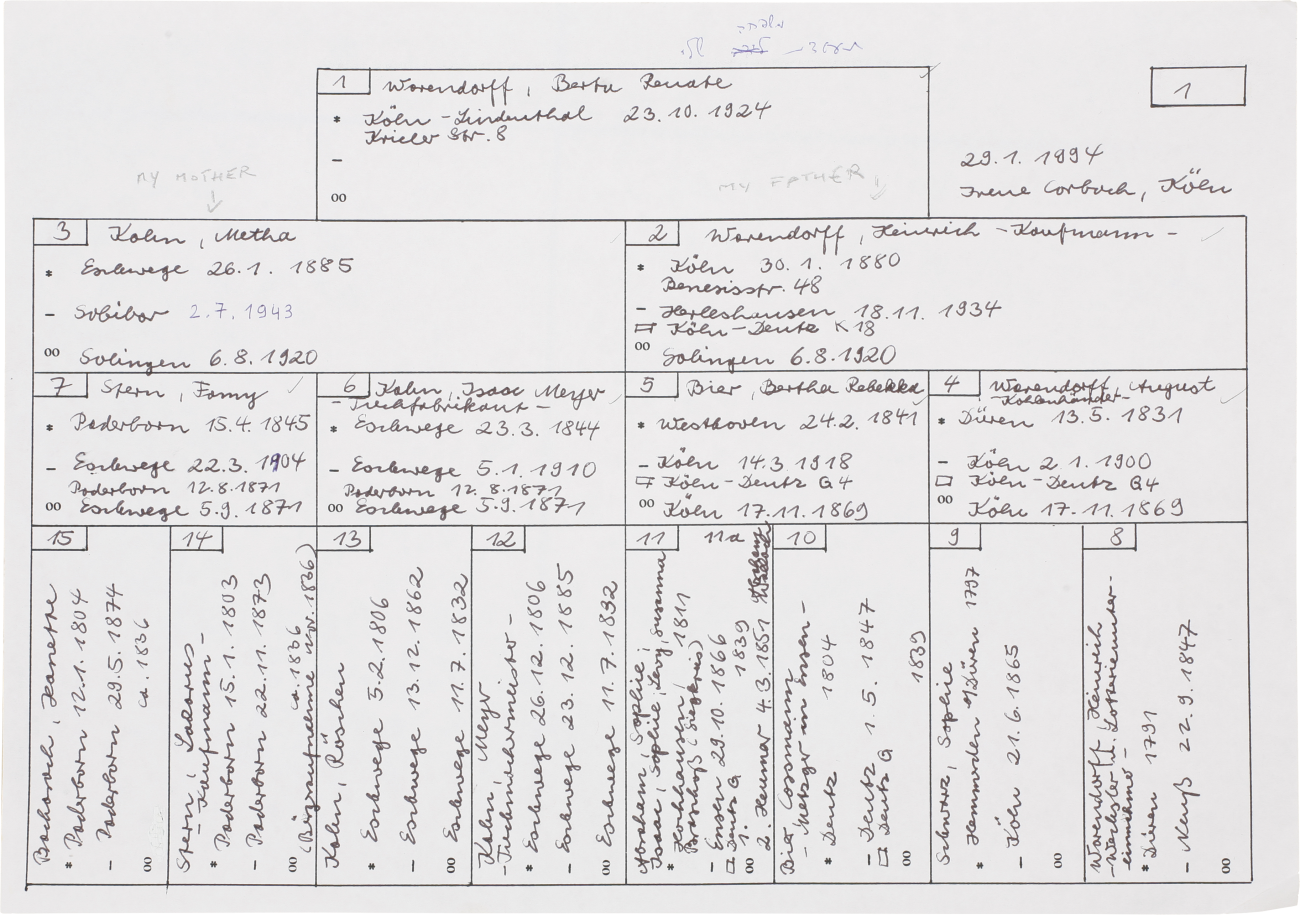 1
Warendorff, Berta Renate
* Köln-Lindenthal 23.10.1924
Krieler Str. 8
–
oo
1
29.1.1994
Irene Corbach, Köln
MY MOTHER
↓
MY FATHER
↓
3
Kahn, Metha
* Eschwege 26.1.1885
– Sobibor 2.7.1943
oo Solingen 6.8.1920
2
Warendorff, Heinrich - Kaufmann -
* Köln 30.1.1880
Benesisstr. 48
– Herleshausen 18.11.1934
Köln-Deutz K 18
oo Solingen 6.8.1920
7
Stern, Fanny
* Paderborn 15.4.1845
– Eschwege 22.3.1904
Paderborn 12.8.1871
oo Eschwege 5.9.1871
6
Kahn, Isaac Meyer
- Tuchfabrikant -
* Eschwege 23.3.1844
– Eschwege 5.1.1910
Paderborn 12.8.1871
oo Eschwege 5.9.1871
5
Bier, Bertha Rebekka
* Westhoven 24.2.1841
– Köln 14.3.1918
Köln-Deutz G4
oo Köln 17.11.1869
4
Warendorff, August
- Kohlenhändler -
* Düren 13.5.1831
– Köln 2.1.1900
Köln-Deutz G4
oo Köln 17.11.1869
15
Bacharach, Jeanette
* Paderborn 12.1.1804
– Paderborn 29.5.1874
oo ca. 1836
14
Stern, Lazarus
- Kaufmann -
* Paderborn 15.1.1803
– Paderborn 22.11.1873
oo ca. 1836
(Bürgeraufnahme Nov. 1836)
13
Kahn, Röschen
* Eschwege 5.2.1806
– Eschwege 13.12.1862
oo Eschwege 11.7.1832
12
Kahn, Meyer
- Tuchmachermeister -
* Eschwege 26.12.1806
– Eschwege 23.12.1885
oo Eschwege 11.7.1832
11
11a
Abraham, Sophie;
Isaac, Sophie, Levy, Susanna
* 1811
(Siegkreis)
– Ensen 29.10.1866
Deutz G
oo 1. 1839
2. Heumar 4.3.1851
10
Bier Cossmann
- Metzger in Ensen -
* Deutz 1804
– Deutz 1.5.1847
Deutz G
oo 1839
9
Schwarz, Sophie
* Hemmerden o/Düren 1797
– Köln 21.6.1865
oo
8
Warendorff, Heinrich
- Wechsler u. Lotterieunter-
einnehmer -
* Düren 1791
– Neuß 22.9.1847
oo